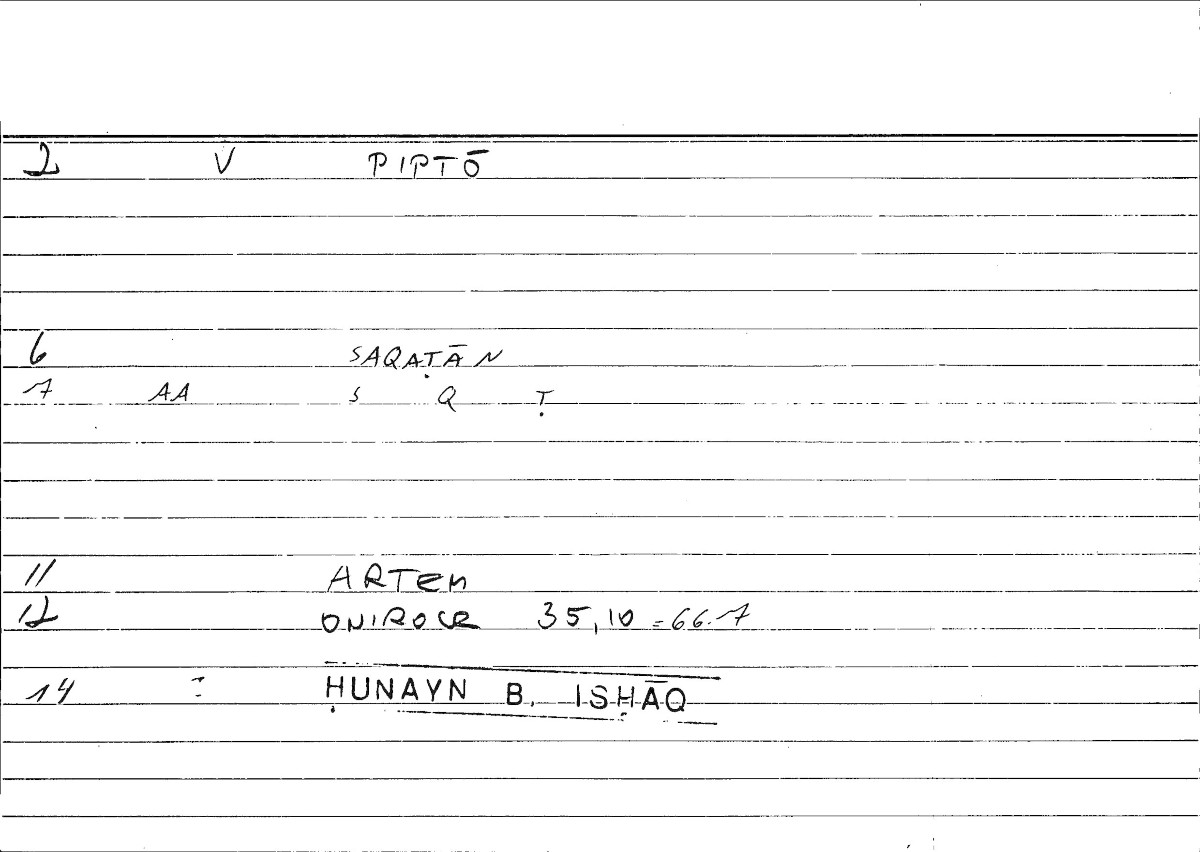 2 V PIPTŌ
6 SAQAṬĀN
7 AA S Q Ṭ
11 ARTEM
12 ONIROCR 35,10 = 66.7
14 : ḤUNAYN B. ISḤĀQ